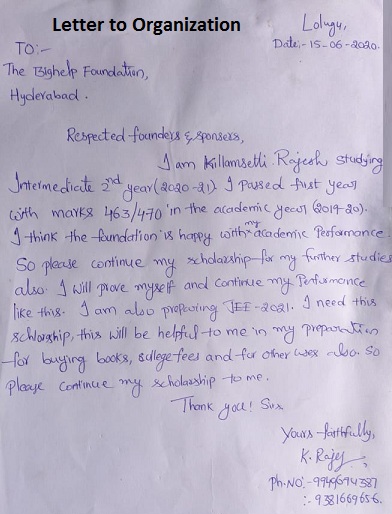 Letter to Organization
Lolugu,
Date:- 15-06-2020.
TO:-
The Bighelp Foundation,
Hyderabad.
Respected founders & sponsers,
I am Killamsetti Rajesh studying
Intermediate 2nd year (2020-21). I Passed first year
with marks 463/470 in the academic year (2019-20).
I think the foundation is happy with my academic Performance.
So please continue my scholarship for my further studies
also. I will prove myself and continue my Performance
like this. I am also preparing JEE-2021. I need this
scholarship, this will be helpful to me in my preparation
for buying books, college fees and for other uses also. So
please continue my scholarship to me.
Thank you! Sir
Yours faithfully,
K. Rajesh
Ph.NO:-
:- 9381669656.